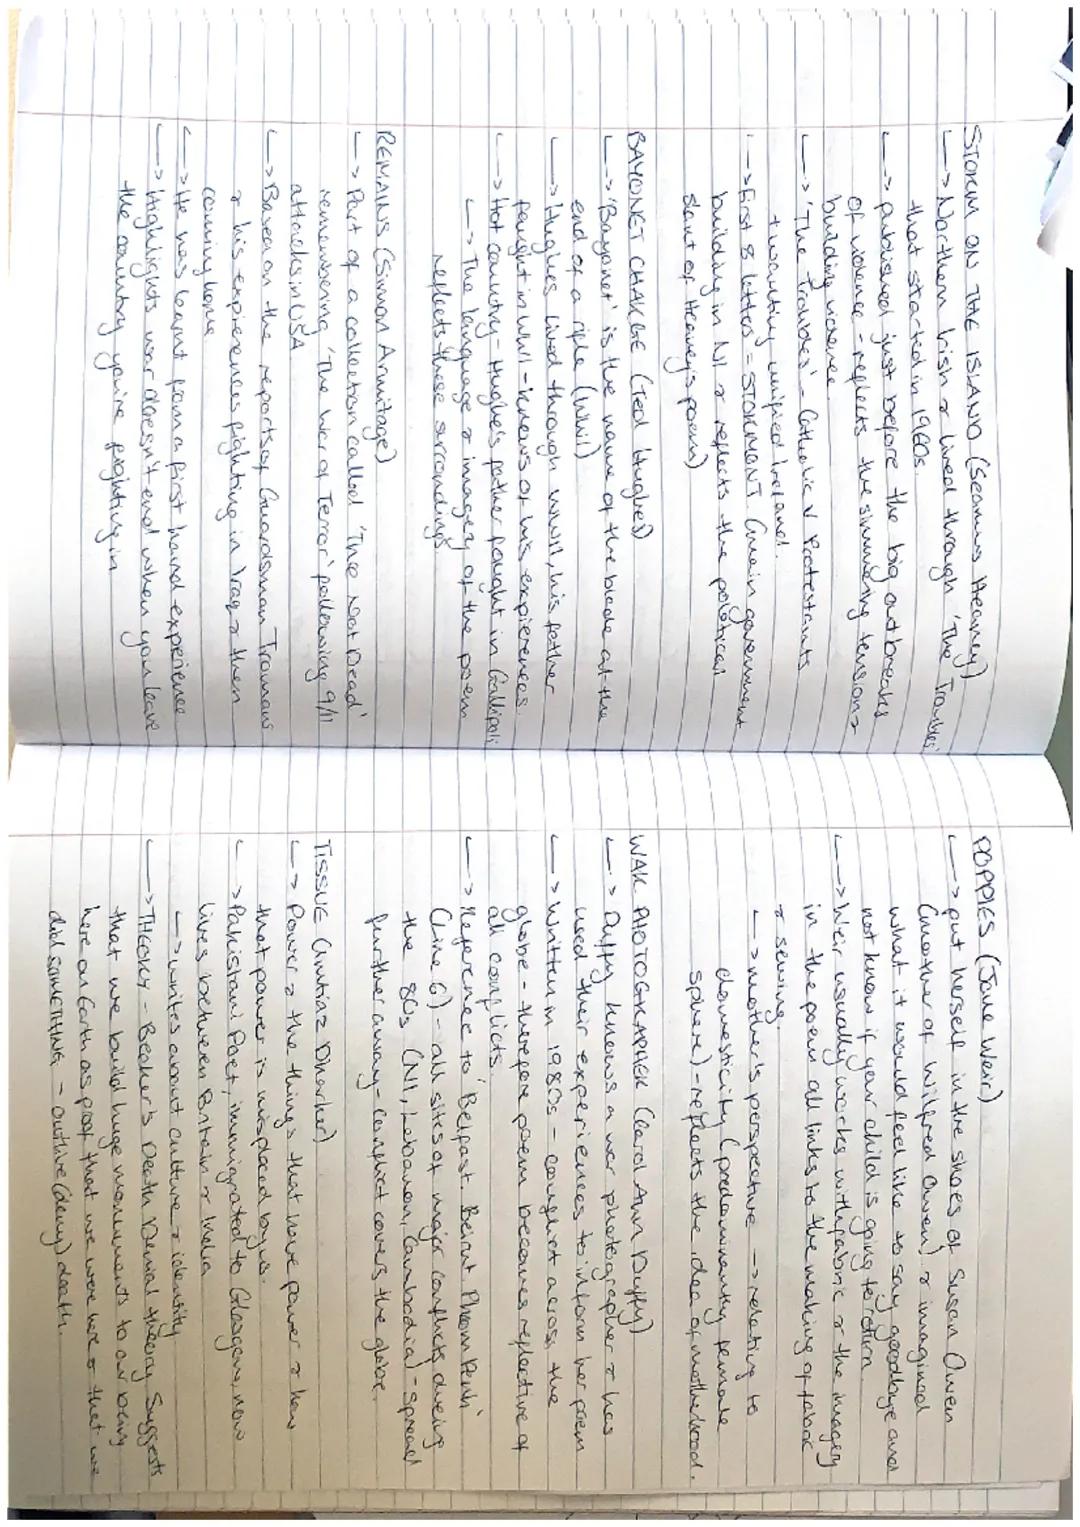 STORM ON THE ISLAND (Seamus Heaney)
↳ Northern Irish & lived through 'The Troubles'
that started in 1960s.
↳ published just before the big outbreaks
of violence - reflects the simmering tensions &
building violence
↳ 'The Troubles' - Catholic v Protestants
+ wanting unified Ireland.
↳ First 8 letters = STORMONT (main government
building in NI & reflects the political
slant of Heaney's poem)
BAYONET CHARGE (Ted Hughes)
↳ 'Bayonet' is the name of the blade at the
end of a rifle (WWI)
↳ Hughes lived through WWII, his father
fought in WWI - knows of his expierences.
↳ Hot country - Hughes's father fought in Gallipoli
↳ The language & imagery of the poem
reflects these surrondings
REMAINS (Simon Armitage)
↳ Part of a collection called 'The Not Dead'
remembering 'The War of Terror' following 9/11
attacks in USA
↳ Based on the reports of Guardsman Tromans
& his expierences fighting in Iraq & then
coming home
↳ He was learnt from a first hand experience
↳ Highlights war doesn't end when you leave
the country you're fighting in
POPPIES (Jane Weir)
↳ put herself in the shoes of Susan Owen
(mother of Wilfred Owen) & imagined
what it would feel like to say goodbye and
not know if your child is going to return
↳ Weir usually works with fabric & the imagery
in the poem all links to the making of fabric
& sewing.
↳ mother's perspective → relating to
domesticity (predominently female
sphere) - reflects the idea of motherhood.
WAR PHOTOGRAPHER (Carol Ann Duffy)
↳ Duffy knows a war photographer & has
used their experiences to inform her poem
↳ Written in 1980s - conflict across the
globe - therefore poem becomes reflective of
all conflicts.
↳ Reference to 'Belfast. Beirut. Phnom Penh'
(Line 6) - all sites of major conflicts during
the 80s (NI, Lebanon, Cambodia) - spread
further away - conflict covers the globe.
TISSUE (Imtiaz Dharker)
↳ Power & the things that have power & how
that power is misplaced by us.
↳ Pakistani Poet, immigrated to Glasgow, now
lives between Britain & India
↳ writes about culture & identity
↳ THEORY - Becker's Death Denial theory suggests
that we build huge monuments to our being
here on Earth as proof that we were here & that we
did SOMETHING - outlive (deny) death.